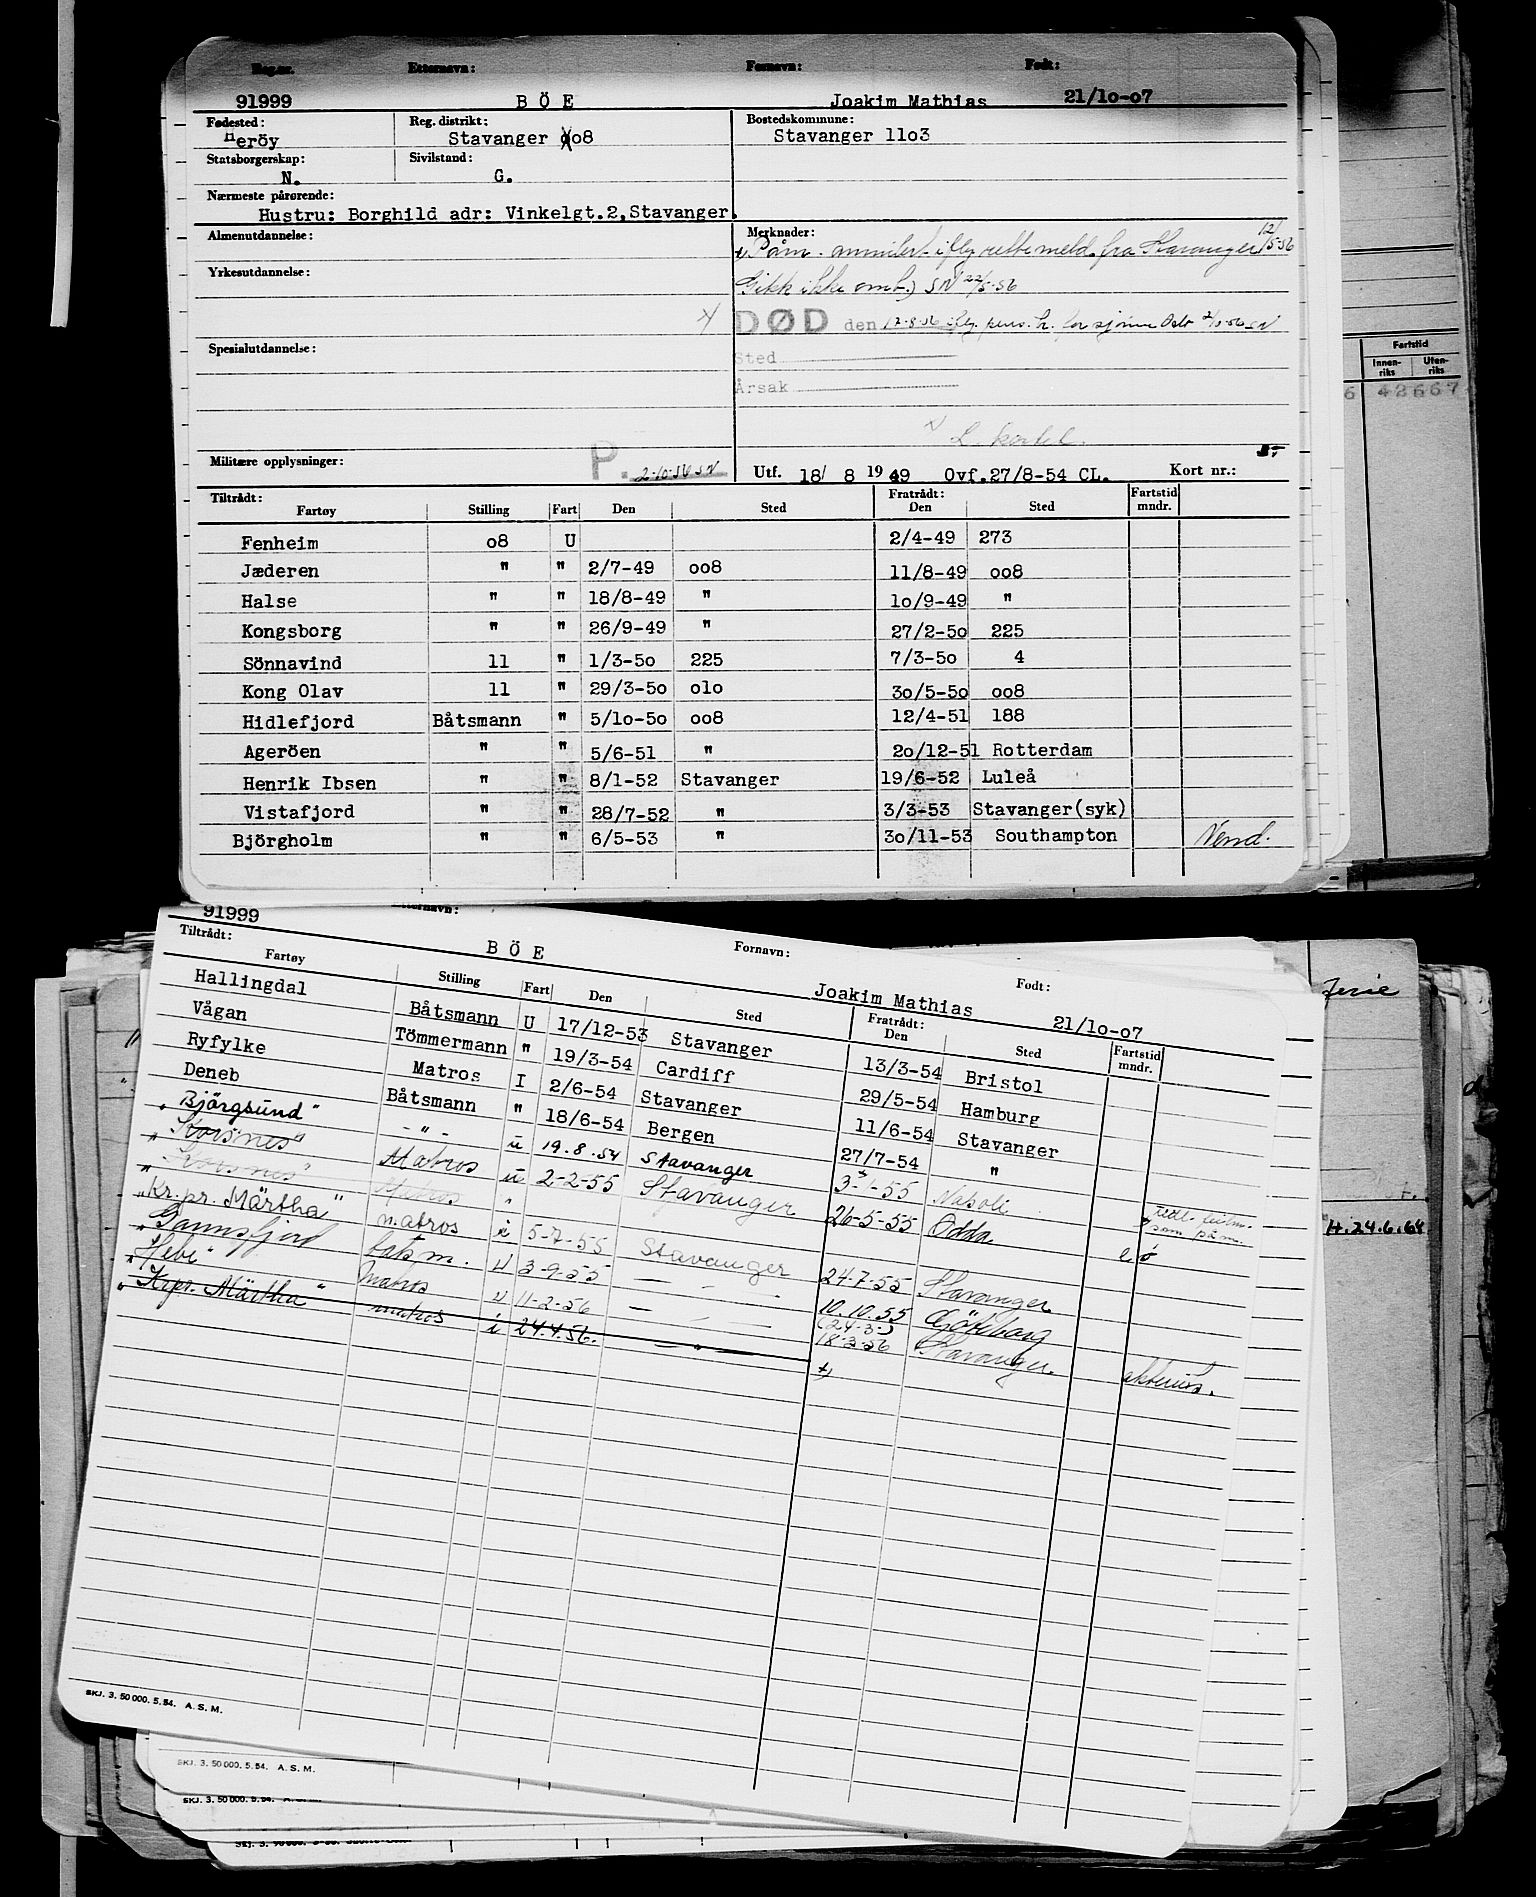 Reg.nr. Etternavn: Fornavn: Født:
91999 B Ö E Joakim Mathias 21/1o-o7
Fødested: Reg. distrikt: Bostedskommune:
Heröy Stavanger oo8 Stavanger 11o3
Statsborgerskap: Sivilstand:
N. G.
Nærmeste pårørende:
Hustru: Borghild adr: Vinkelgt.2,Stavanger.
Almenutdannelse: Merknader:
x) Påm. annulert iflg. rettemeld. fra Stavanger 12/5-56
Yrkesutdannelse:
Gikk ikke omb.) SN 22/5-56
x) DØD den 12-8-56 iflg. pers. k. for sjömenn Oslo 2/10-56 SN
Spesialutdannelse: Sted
Årsak
x) L. kartel.
Militære opplysninger: P. 2-10-56 SN Utf. 18/ 8 1949 Ovf.27/8-54 CL. Kort nr.:
Tiltrådt: Fratrådt: Fartstid
Fartøy Stilling Fart Den Sted Den Sted mndr.
Fenheim o8 U 2/4-49 273
Jæderen " " 2/7-49 oo8 11/8-49 oo8
Halse " " 18/8-49 " 1o/9-49 "
Kongsborg " " 26/9-49 " 27/2-5o 225
Sönnavind 11 " 1/3-5o 225 7/3-5o 4
Kong Olav 11 " 29/3-5o o1o 3o/5-5o oo8
Hidlefjord Båtsmann " 5/1o-5o oo8 12/4-51 188
Ageröen " " 5/6-51 " 2o/12-51 Rotterdam
Henrik Ibsen " " 8/1-52 Stavanger 19/6-52 Luleå
Vistafjord " " 28/7-52 " 3/3-53 Stavanger(syk)
Björgholm " " 6/5-53 " 3o/11-53 Southampton Vend.
Fartstid
Innen-riks Uten-riks
6 42667
91999 Etternavn: B Ö E Fornavn: Joakim Mathias Født: 21/1o-o7
Tiltrådt: Fratrådt: Fartstid
Fartøy Stilling Fart Den Sted Den Sted mndr.
Hallingdal Båtsmann U 17/12-53 Stavanger 13/3-54 Bristol
Vågan Tömmermann " 19/3-54 Cardiff 29/5-54 Hamburg
Ryfylke Matros I 2/6-54 Stavanger 11/6-54 Stavanger
Deneb Båtsmann " 18/6-54 Bergen 27/7-54 "
"Björgsund" - " - u 19.8.54 Stavanger 3-1-55 Napoli
"Korsnes" Matros u 2-2-55 Stavanger 26-5-55 Odda
"Korsnes" Matros "
"Kr.pr. Märtha" matros i 5-7-55 Stavanger 24-7-55 Stavanger
"Gannsfjord båtsm. u 3-9-55 — " — 10.10.55 Göteborg
"Hebe" Matros u 11-2-56 — " — (24-3-) 18-3-56 Stavanger.
"Kr.pr. Märtha" matros i 24.4.56. — " — x)
H.24.6.64
SKJ. 3. 50 000. 5.54. A. S. M.
SKJ. 3. 50 000. 5.54. A. S. M.
SKJ. 3. 50 000. 5.54. A. S. M.